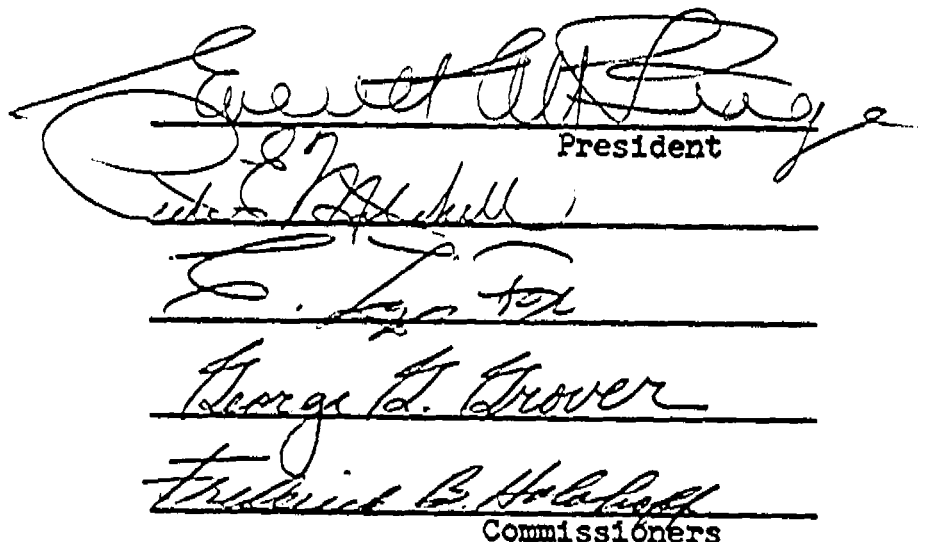 Everett C. McKeage
President
Peter E. Mitchell
E. Lyn Fox
George G. Grover
Frederick B. Holoboff
Commissioners